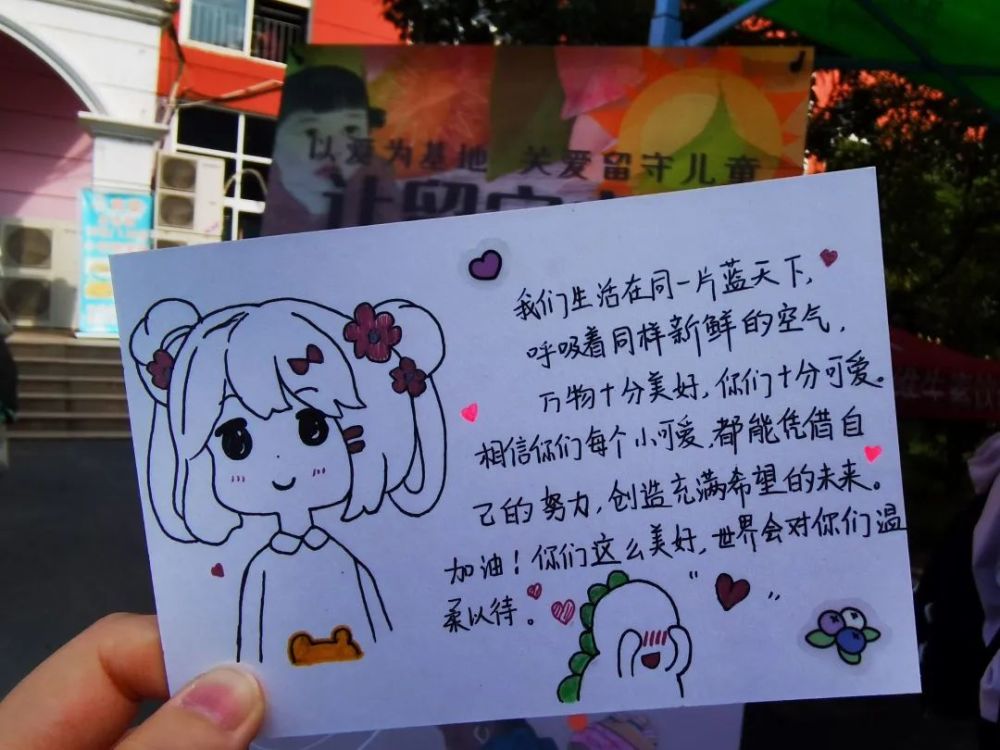 以爱为基地 关爱留守儿童
让留守
我们生活在同一片蓝天下,
呼吸着同样新鲜的空气,
万物十分美好,你们十分可爱。
相信你们每个小可爱,都能凭借自
己的努力,创造充满希望的未来。
加油!你们这么美好,世界会对你们温
柔以待。